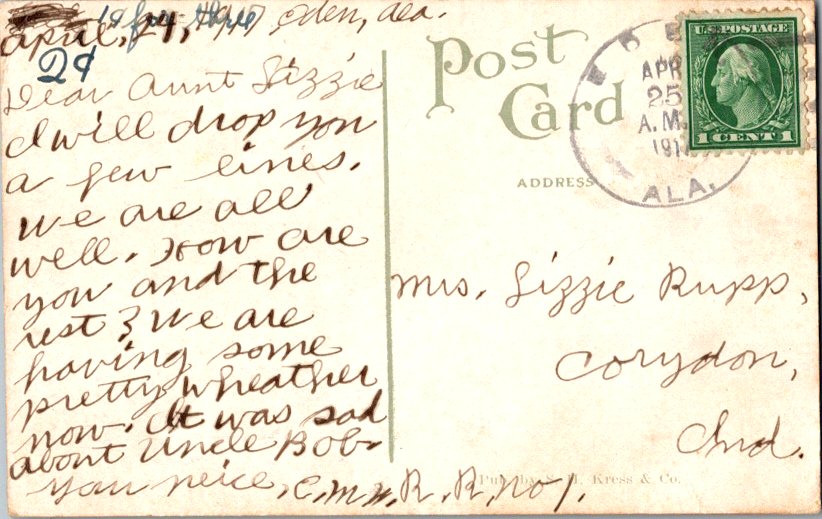 April, 24, 1917, Eden, Ala.
2¢
Dear Aunt Lizzie
I will drop you
a few lines.
We are all
well. How are
you and the
rest? We are
having some
pretty wheather
now. It was sad
about Uncle Bob.
your neice, C.M.
R. R. no 1.
Post
Card
ADDRESS
APR
25
A.M.
191
ALA.
U.S. POSTAGE
1 CENT 1
Mrs. Lizzie Rupp,
Corydon,
Ind.
H. Kress & Co.